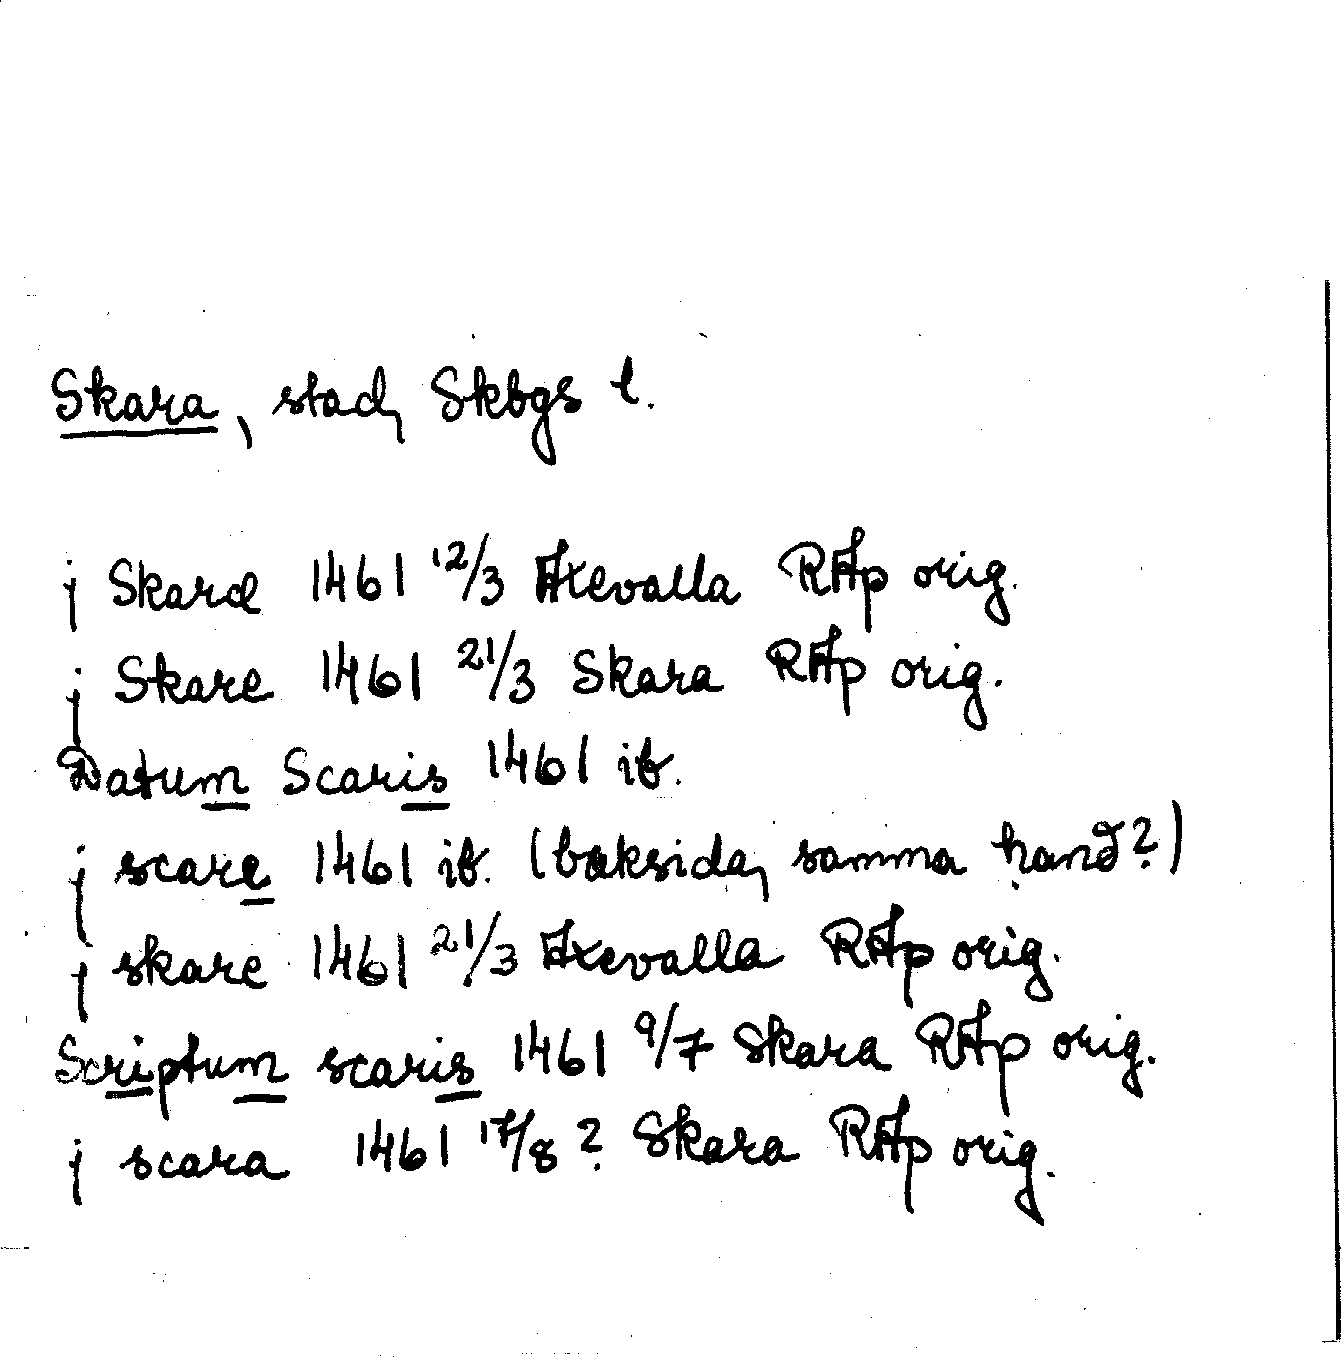 Skara, stad, Skbgs l.
j Skaræ 1461 12/3 Axevalla RAp orig.
j Skare 1461 21/3 Skara RAp orig.
Datum Scaris 1461 ib.
j scare 1461 ib. (baksida, samma hand?)
j skare 1461 21/3 Axevalla RAp orig.
Scriptum scaris 1461 9/7 Skara RAp orig.
j scara 1461 17/8? Skara RAp orig.